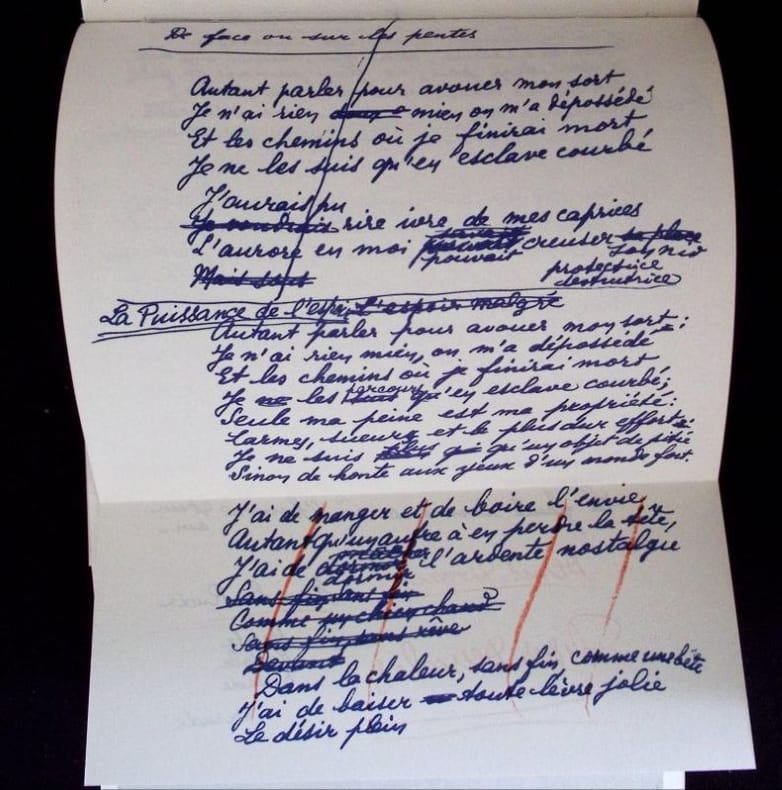 De face ou sur les pentes
Autant parler pour avouer mon sort
Je n'ai rien mien on m'a dépossédé
Et les chemins où je finirai mort
Je ne les suis qu'en esclave courbé
J'aurais pu
Je voudrais rire ivre de mes caprices
L'aurore en moi pouvait creuser sa place
son nid
protectrice
destructrice
Mais sous
La Puissance de l'espoir l'espoir malgré
Autant parler pour avouer mon sort :
Je n'ai rien mien, on m'a dépossédé
Et les chemins où je finirai mort
Je ne les parcours qu'en esclave courbé;
Seule ma peine est ma propriété :
Larmes, sueurs et le plus dur effort.
Je ne suis plus qu'un objet de pitié
Sinon de honte aux yeux d'un monde fort.
J'ai de manger et de boire l'envie
Autant qu'un autre à en perdre la tête,
J'ai de dormir l'ardente nostalgie
dormir
Sans fin sans fin
Comme un chien chaud
Sans fin, sans rêve
Devant
Dans la chaleur, sans fin, comme une bête
J'ai de baiser toute lèvre jolie
Le désir plein